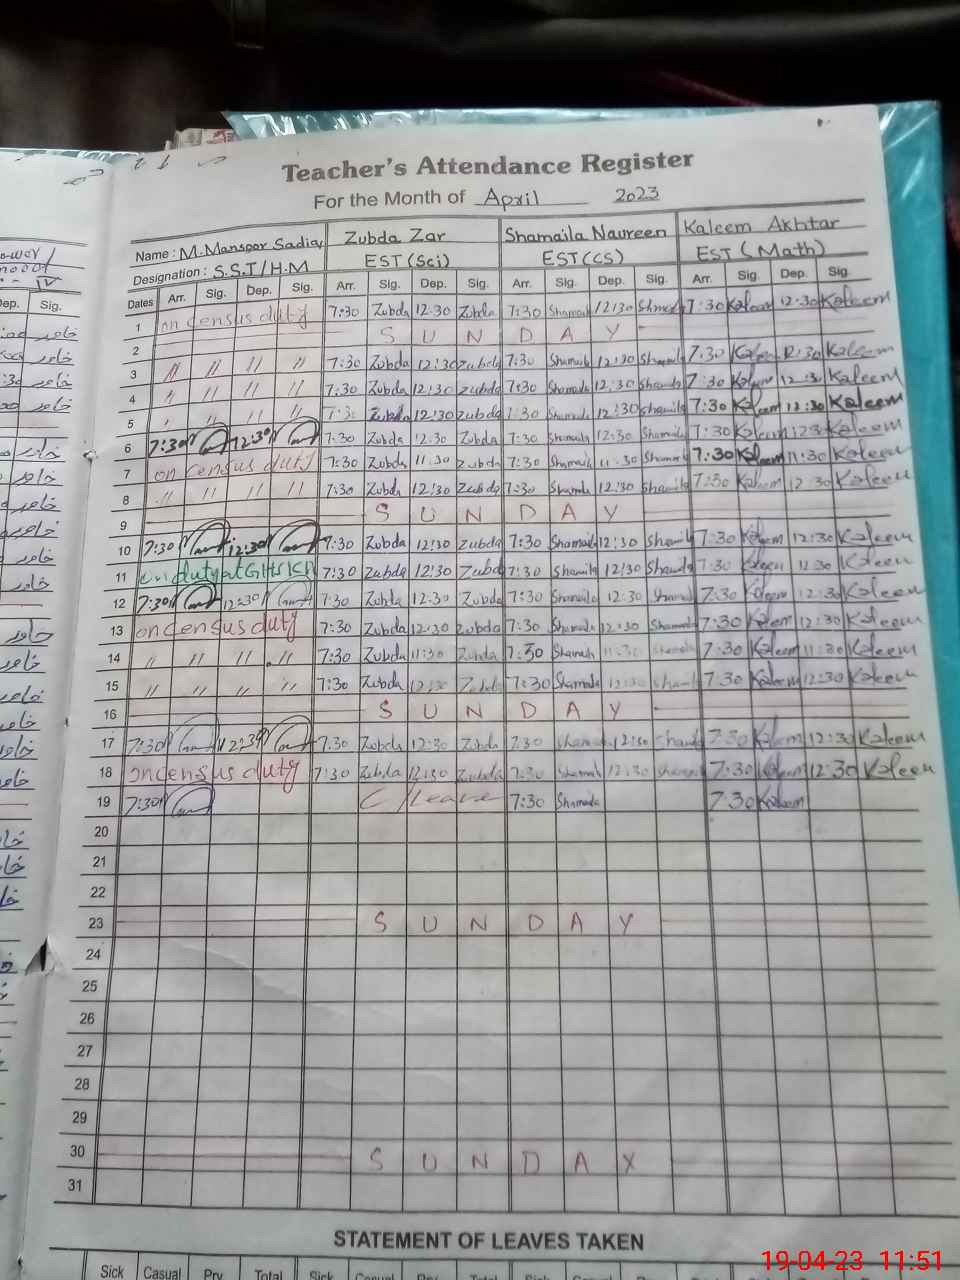 Teacher's Attendance Register
For the Month of April 2023
Name : M. Mansoor Sadiq Zubda Zar Shamaila Naureen Kaleem Akhtar
Designation : S.S.T/H.M EST (Sci) EST (CS) EST (Math)
Dates Arr. Sig. Dep. Sig. Arr. Sig. Dep. Sig. Arr. Sig. Dep. Sig. Arr. Sig. Dep. Sig.
1 on census duty 7:30 Zubda 12:30 Zubda 7:30 Shamaila 12:30 7:30 Kaleem 12:30 Kaleem
2 S U N D A Y
3 " " " " 7:30 Zubda 12:30 Zubda 7:30 Shamaila 12:30 Shamaila 7:30 Kaleem 12:30 Kaleem
4 " " " " 7:30 Zubda 12:30 Zubda 7:30 Shamaila 12:30 Shamaila 7:30 Kaleem 12:30 Kaleem
5 " " " " 7:30 Zubda 12:30 Zubda 7:30 Shamaila 12:30 Shamaila 7:30 Kaleem 12:30 Kaleem
6 7:30 12:30 7:30 Zubda 12:30 Zubda 7:30 Shamaila 12:30 Shamaila 7:30 Kaleem 12:30 Kaleem
7 on census duty 7:30 Zubda 11:30 Zubda 7:30 Shamaila 11:30 Shamaila 7:30 Kaleem 11:30 Kaleem
8 " " " " 7:30 Zubda 12:30 Zubda 7:30 Shamaila 12:30 Shamaila 7:30 Kaleem 12:30 Kaleem
9 S U N D A Y
10 7:30 12:30 7:30 Zubda 12:30 Zubda 7:30 Shamaila 12:30 Shamaila 7:30 Kaleem 12:30 Kaleem
11 on duty at 7:30 Zubda 12:30 Zubda 7:30 Shamaila 12:30 Shamaila 7:30 Kaleem 12:30 Kaleem
12 7:30 12:30 7:30 Zubda 12:30 Zubda 7:30 Shamaila 12:30 Shamaila 7:30 Kaleem 12:30 Kaleem
13 on census duty 7:30 Zubda 12:30 Zubda 7:30 Shamaila 12:30 Shamaila 7:30 Kaleem 12:30 Kaleem
14 " " " " 7:30 Zubda 11:30 Zubda 7:30 Shamaila 11:30 Shamaila 7:30 Kaleem 11:30 Kaleem
15 " " " " 7:30 Zubda 12:30 Zubda 7:30 Shamaila 12:30 Shamaila 7:30 Kaleem 12:30 Kaleem
16 S U N D A Y
17 7:30 12:30 7:30 Zubda 12:30 Zubda 7:30 Shamaila 12:30 Shamaila 7:30 Kaleem 12:30 Kaleem
18 on census duty 7:30 Zubda 12:30 Zubda 7:30 Shamaila 12:30 Shamaila 7:30 Kaleem 12:30 Kaleem
19 7:30 C/Leave 7:30 Shamaila 7:30 Kaleem
20
21
22
23 S U N D A Y
24
25
26
27
28
29
30 S U N D A Y
31
STATEMENT OF LEAVES TAKEN
Sick Casual Prv Total Sick Casual Prv Total Sick
19-04-23 11:51